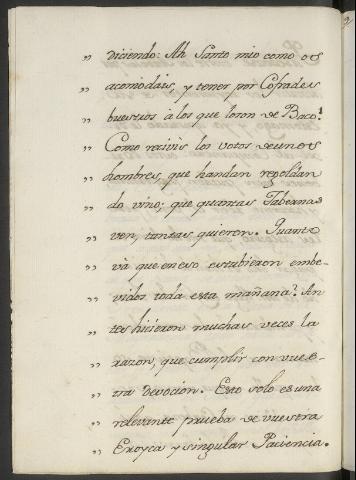 „ diciendo: Ah Santo mio como os
„ acomodais, y tener por Cofrades
„ buestros à los que lo son de Baco!
„ Como recivis los votos de unos
„ hombres, que handan regoldan
„ do vino; que quantas Tabernas
„ ven, tantas quieren. Quanto
„ và que en eso estubieron embe-
„ vidos toda esta mañana? An
„ tes hicieron muchas veces la
„ razon, que cumplir con vues-
„ tra devocion. Esto solo es una
„ relevante prueba de vuestra
„ Eroyca y singular Paciencia.